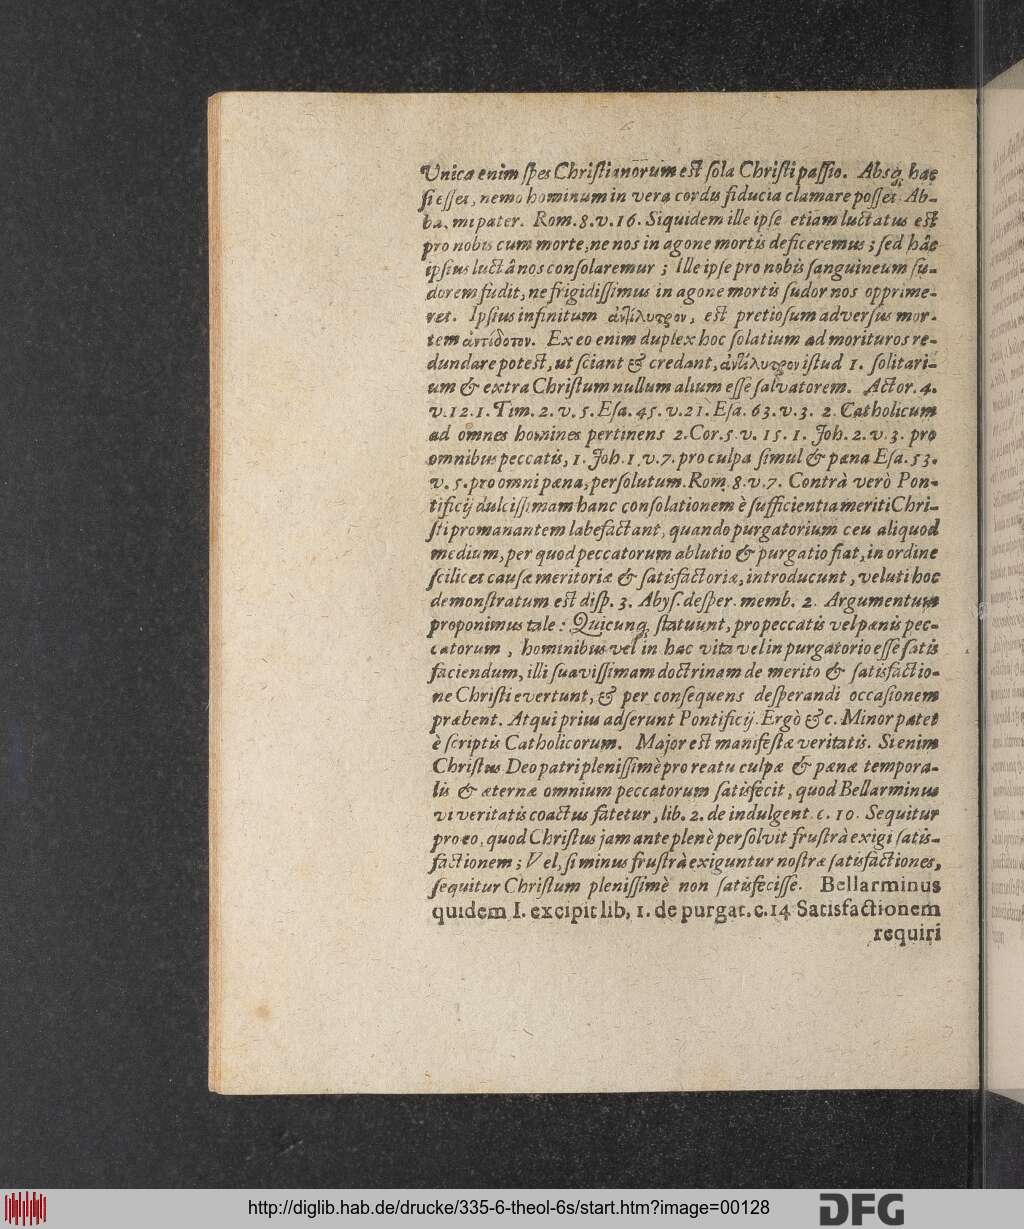 Unica enim ſpes Chriſtianorum eſt ſola Chriſti paſſio. Absq; hac
ſi eſſet, nemo hominum in vera cordis fiducia clamare poſſet Ab-
ba, mi pater. Rom. 8. v. 16. Siquidem ille ipſe etiam luctatus eſt
pro nobis cum morte, ne nos in agone mortis deficeremus; ſed hâc
ipſius luctâ nos conſolaremur; Ille ipſe pro nobis ſanguineum ſu-
dorem fudit, ne frigidiſſimus in agone mortis ſudor nos opprime-
ret. Ipſius infinitum ἀντίλυτρον, eſt pretioſum adverſus mor-
tem ἀντίδοτον. Ex eo enim duplex hoc ſolatium ad morituros re-
dundare poteſt, ut ſciant & credant, ἀντίλυτρον iſtud 1. ſolitari-
um & extra Chriſtum nullum alium eſſe ſalvatorem. Actor. 4.
v. 12. 1. Tim. 2. v. 5. Eſa. 45. v. 21. Eſa. 63. v. 3. 2. Catholicum
ad omnes homines pertinens 2. Cor. 5. v. 15. 1. Joh. 2. v. 3. pro
omnibus peccatis, 1. Joh. 1. v. 7. pro culpa ſimul & pœna Eſa. 53.
v. 5. pro omni pœna, perſolutum. Rom. 8. v. 7. Contrà verò Pon-
tificij dulciſſimam hanc conſolationem è ſufficientia meriti Chri-
ſti promanantem labefactant, quando purgatorium ceu aliquod
medium, per quod peccatorum ablutio & purgatio fiat, in ordine
ſcilicet cauſæ meritoriæ & ſatisfactoriæ, introducunt, veluti hoc
demonſtratum eſt diſp. 3. Abyſ. deſper. memb. 2. Argumentum
proponimus tale: Quicunq; ſtatuunt, pro peccatis vel pœnis pec-
catorum, hominibus vel in hac vita vel in purgatorio eſſe ſatis
faciendum, illi ſuaviſſimam doctrinam de merito & ſatisfactio-
ne Chriſti evertunt, & per conſequens deſperandi occaſionem
præbent. Atqui prius adſerunt Pontificij. Ergò & c. Minor patet
è ſcriptis Catholicorum. Major eſt manifeſtæ veritatis. Si enim
Chriſtus Deo patri pleniſſimè pro reatu culpæ & pœnæ tempora-
lis & æternæ omnium peccatorum ſatisfecit, quod Bellarminus
vi veritatis coactus fatetur, lib. 2. de indulgent. c. 10. Sequitur
pro eo, quod Chriſtus jam ante plenè perſolvit fruſtrà exigi ſatis-
factionem; Vel, ſi minus fruſtrà exiguntur noſtræ ſatisfactiones,
ſequitur Chriſtum pleniſſimè non ſatisfeciſſe. Bellarminus
quidem I. excipit lib, 1. de purgat. c. 14 Satisfactionem
requiri
http://diglib.hab.de/drucke/335-6-theol-6s/start.htm?image=00128
DFG